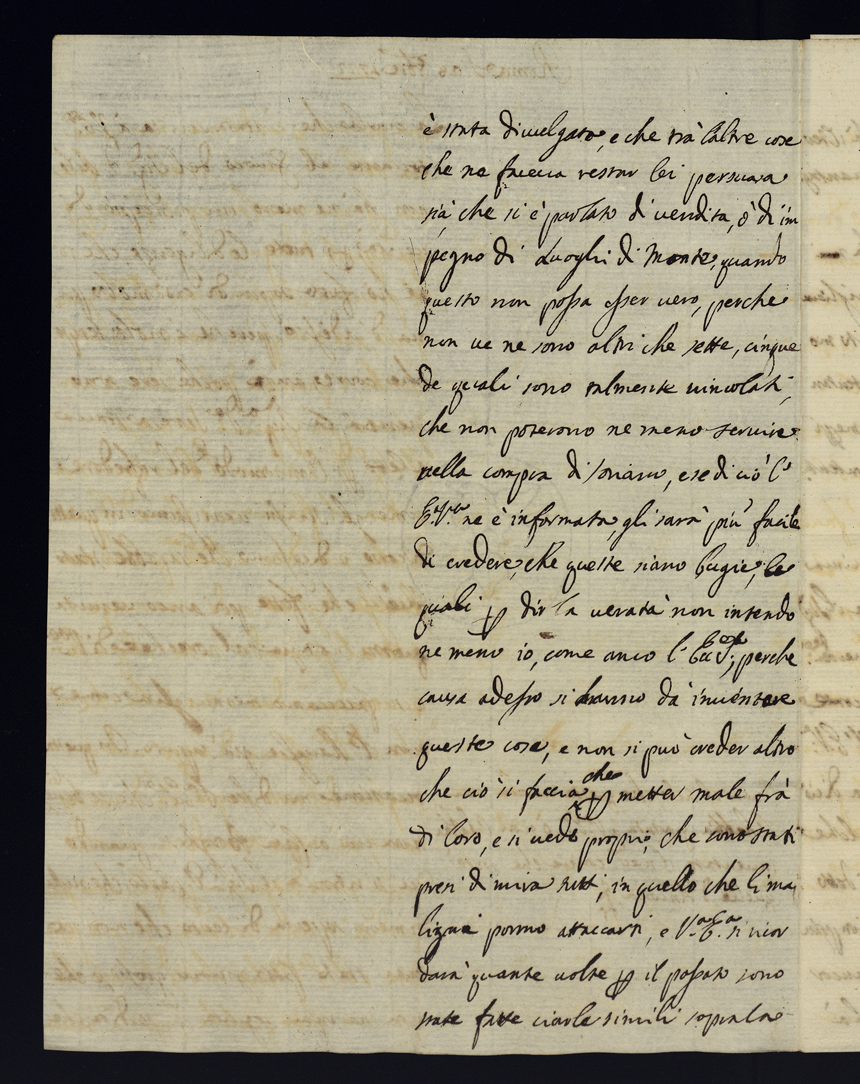 è stata divulgata, e che trà l'altre cose
che ne faccia restar lei persuasa
sia che si è parlato di vendita, ò d'im
pegno di Luoghi di Monte, quando
questo non possa esser vero, perche
non ve ne sono altri che sette, cinque
de quali sono talmente vincolati,
che non poterono ne meno servire
nella compra di Soriano, e se di ciò l'
E.V. ne è informata, gli sarà più facile
di credere, che queste siano bugie, le
quali ꝑ dir la verità non intendo
ne meno io, come anco l' perche
causa adesso si hanno da inventare
queste cose, e non si può creder altro
che ciò si faccia che ꝑ metter male frà
di loro, e si vede proprio, che sono stati
presi di mira tutti, in quello che li ma
ligni ponno attaccarsi, e V.E. si ricor
darà quante volte ꝑ il passato sono
state fatte ciarle simili sopra la